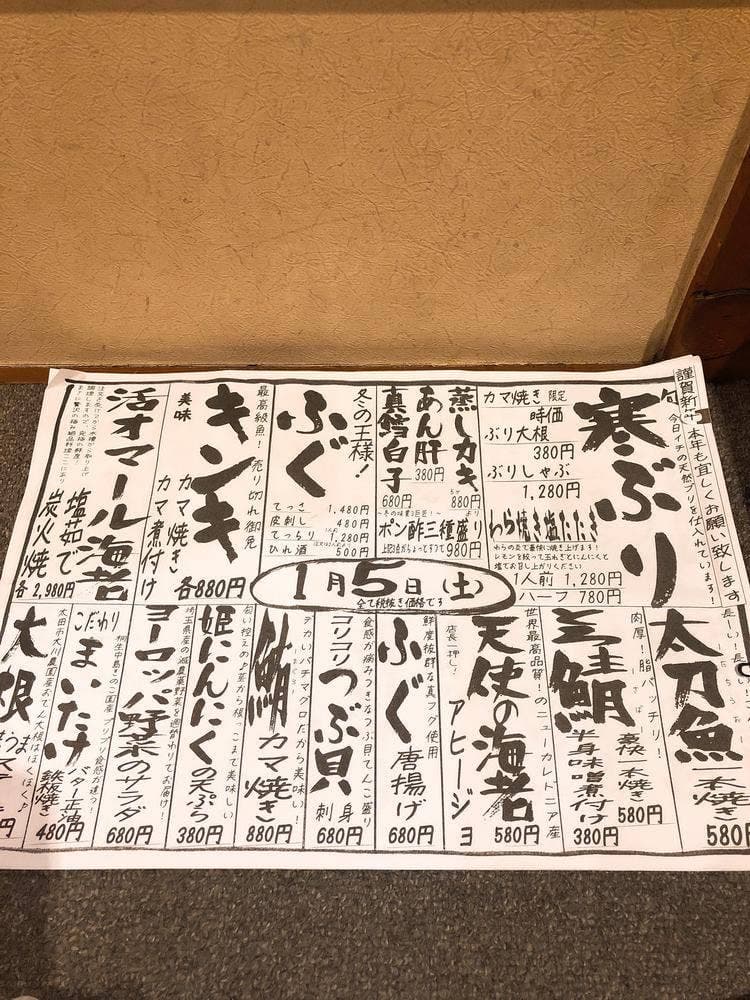 謹賀新年 本年も宜しくお願い致します。
今日イチの天然ブリを仕入れています!
寒ぶり
カマ焼き 限定
時価
ぶり大根
380円
ぶりしゃぶ
1,280円
わら焼き塩たたき
わらの炎で豪快に焼き上げます!
レモンを絞って玉ねぎとにんにくと
塩でお召し上がりください
1人前 1,280円
ハーフ 780円
蒸しカキ
880円
あん肝
380円
真鱈白子
680円
ポン酢三種盛り
980円
冬の王様!
ふぐ
てっさ 1,480円
皮刺し 480円
てっちり 1,280円
ひれ酒 500円
最高級魚! 売り切れ御免
キンキ
美味
カマ焼き
カマ煮付け
各880円
活オマール海老
塩茹で
炭火焼
各2,980円
1月5日(土)
全て税抜き価格です
長ーい!長い
太刀魚
一本焼き
580円
肉厚!脂バッチリ!
さば
豪快一本焼き
580円
半身味噌煮付け
380円
世界最高品質!のニューカレドニア産
天使の海老
580円
店長一押し!
アヒージョ
鮮度抜群な真フグ使用
ふぐ
唐揚げ
680円
食感が痛みつきなつぶ貝てんこ盛り
コリコリつぶ貝
刺身
680円
デカいバチマグロだから美味い!
鮪カマ焼き
880円
匂い控えめ♪茎から根っこまで美味しい
姫にんにくの天ぷら
380円
埼玉県産の減農薬野菜を週替わりでお届け!
ヨーロッパ野菜のサラダ
680円
こだわり
まいたけ
バター正油
鉄板焼き
480円
大根